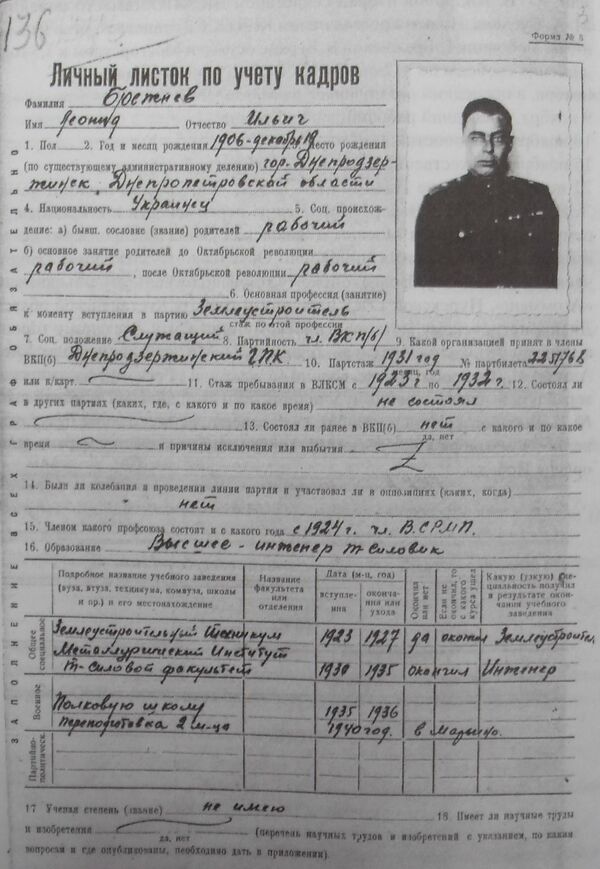 136
3
Форма № 5
Личный листок по учету кадров
Фамилия Брежнев
Имя Леонид Отчество Ильич
1. Пол 2. Год и месяц рождения 1906-декабрь 19 Место рождения
(по существующему административному делению) гор. Днепродзер-
жинск. Днепропетровской области
4. Национальность Украинец 5. Соц. происхож-
дение: а) бывш. сословие (звание) родителей рабочий
б) основное занятие родителей до Октябрьской революции
рабочий, после Октябрьской революции рабочий
6. Основная профессия (занятие)
к моменту вступления в партию Землеустроитель
стаж по этой профессии
7. Соц. положение Служащий 8. Партийность чл. ВКП(б) 9. Какой организацией принят в члены
ВКП(б) Днепродзержинский ГПК 10. Партстаж 1931 год № партбилета
месяц, год
или к/карт. 11. Стаж пребывания в ВЛКСМ с 1923 г. по 1932 г. 12. Состоял ли
в других партиях (каких, где, с какого и по какое время) не состоял
13. Состоял ли ранее в ВКП(б) нет с какого и по какое
да, нет
время и причины исключения или выбытия
14. Были ли колебания в проведении линии партии и участвовал ли в оппозициях (каких, когда)
нет
15. Членом какого профсоюза состоит и с какого года с 1924 г. чл. В.СРМП.
16. Образование Высшее - инженер т-силовик
Подробное название учебного заведения (вуза, втуза, техникума, комвуза, школы и пр.) и его местонахождение
Название факультета или отделения
Дата (м-ц, год)
вступления
окончания или ухода
Окончил или нет
Если не окончил, то с какого курса ушел
Какую (узкую) специальность получил в результате окончания учебного заведения
Общее специальное
Землеустроительный техникум 1923 1927 да Землеустроитель
Металлургический Институт
т-силовой факультет 1930 1935 окончил Инженер
Военное
Полковую школу 1935 1936
переподготовка 2 м-ца 1940 год. в
Партийно-политическ.
17 Ученая степень (звание) не имею 18. Имеет ли научные труды
и изобретения (перечень научных трудов и изобретений с указанием, по каким
да, нет
вопросам и где опубликованы, необходимо дать в приложении).
ЗАПОЛНЕНИЕ ВСЕХ ГРАФ ОБЯЗАТЕЛЬНО